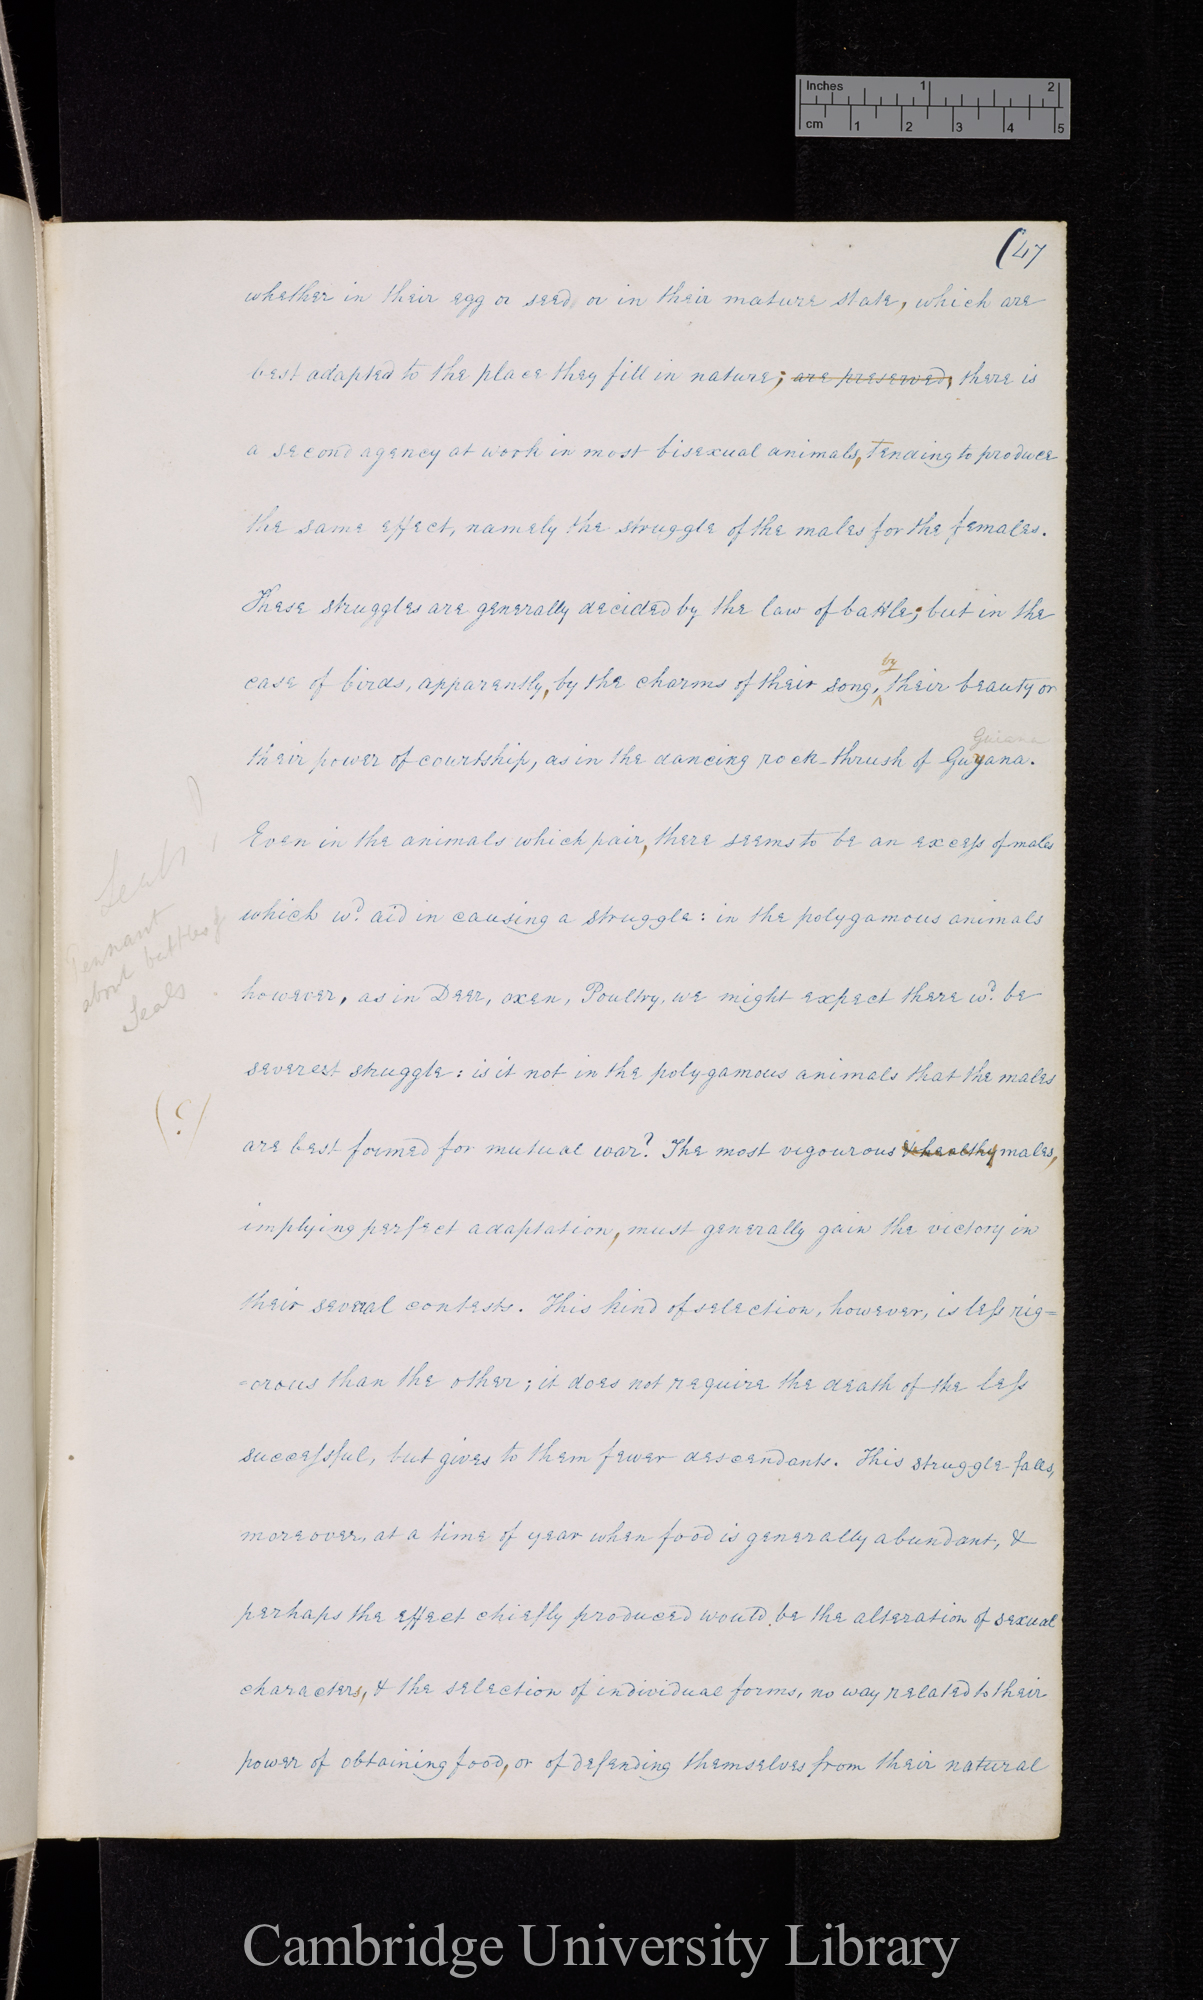 Inches 1 2
cm 1 2 3 4 5
(47
whether in their egg or seed, or in their mature state, which are
best adapted to the place they fill in nature; are preserved, there is
a second agency at work in most bisexual animals, tending to produce
the same effect, namely the struggle of the males for the females.
These struggles are generally decided by the law of battle; but in the
by
case of birds, apparently, by the charms of their song, their beauty or
Guiana
their power of courtship, as in the dancing rock-thrush of Guyana.
Even in the animals which pair, there seems to be an excess of males
which wd. aid in causing a struggle: in the polygamous animals
however, as in Deer, oxen, Poultry, we might expect there wd. be
severest struggle: is it not in the polygamous animals that the males
are best formed for mutual war? The most vigourous & healthy males,
implying perfect adaptation, must generally gain the victory in
their several contests. This kind of selection, however, is less rig=
=orous than the other; it does not require the death of the less
successful, but gives to them fewer descendants. This struggle falls,
moreover, at a time of year when food is generally abundant, &
perhaps the effect chiefly produced would be the alteration of sexual
characters, & the selection of individual forms, no way related to their
power of obtaining food, or of defending themselves from their natural
Seals?
Pennant
about battles of
Seals
(?)
Cambridge University Library